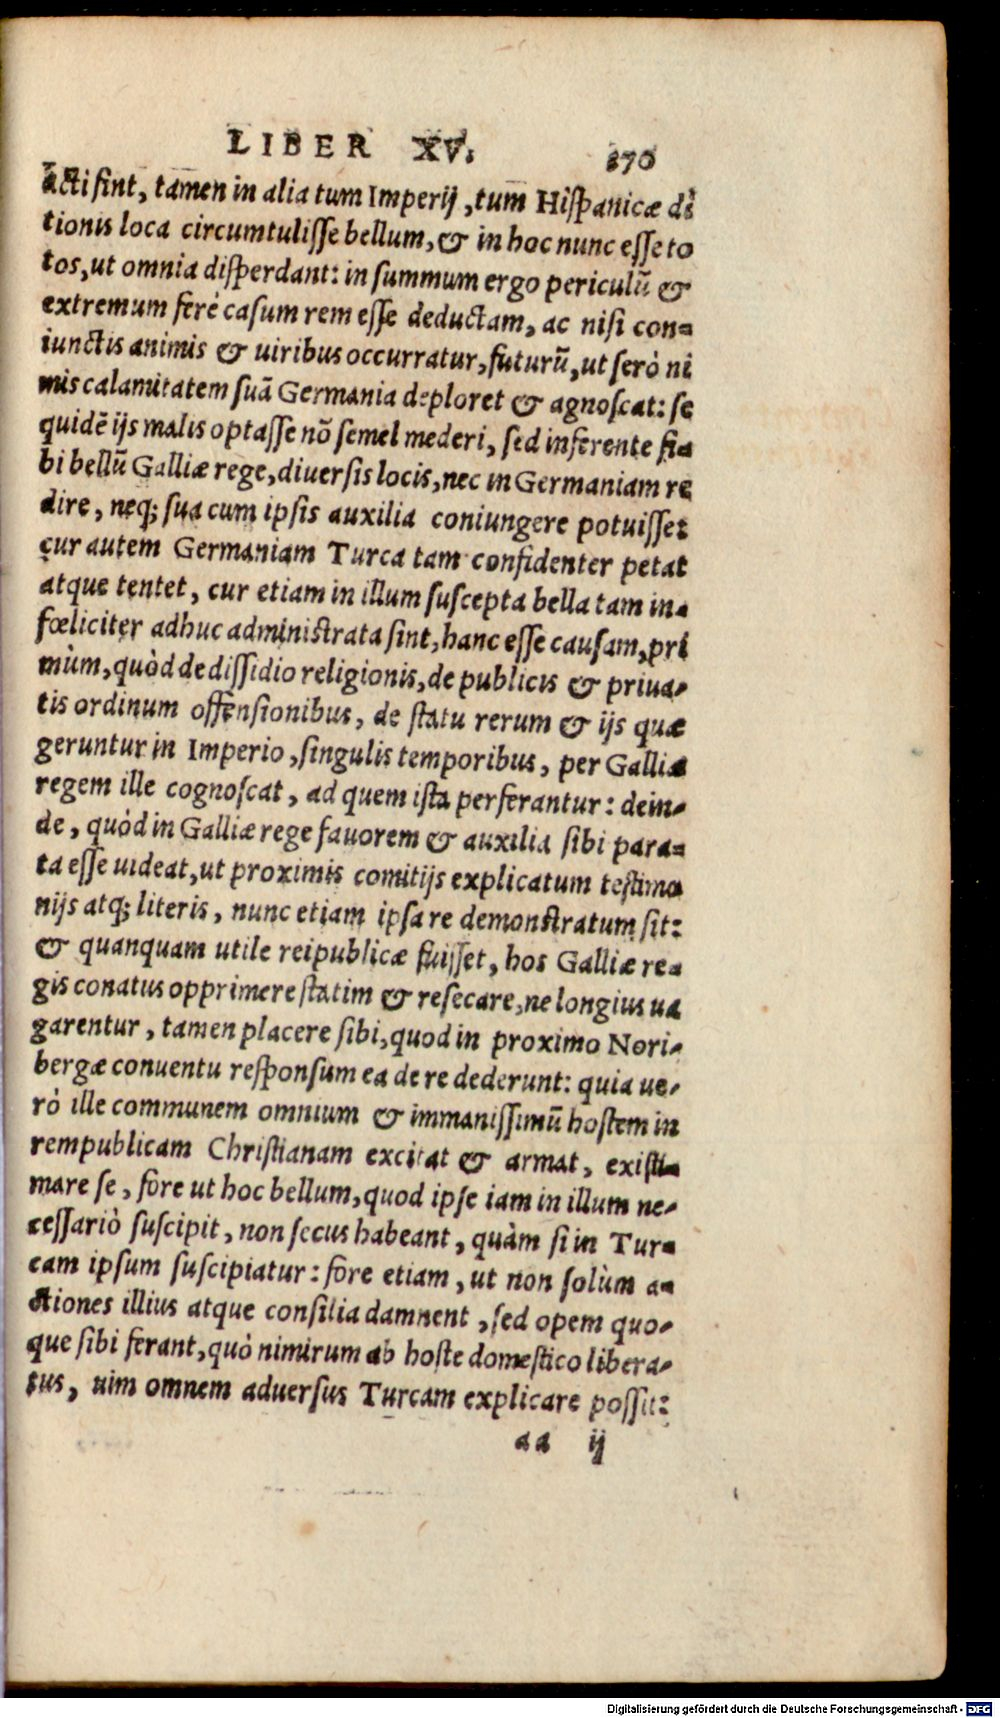 LIBER XV. 370
acti sint, tamen in alia tum Imperij, tum Hispanicæ di
tionis loca circumtulisse bellum, & in hoc nunc esse to
tos, ut omnia disperdant: in summum ergo periculũ &
extremum ferè casum rem esse deductam, ac nisi con-
iunctis animis & uiribus occurratur, futurũ, ut serò ni
mis calamitatem suã Germania deploret & agnoscat: se
quidẽ ijs malis optasse nõ semel mederi, sed inferente si-
bi bellũ Galliæ rege, diuersis locis, nec in Germaniam re
dire, neq; sua cum ipsis auxilia coniungere potuisse:
cur autem Germaniam Turca tam confidenter petat
atque tentet, cur etiam in illum suscepta bella tam in-
fœliciter adhuc administrata sint, hanc esse causam, pri
mùm, quòd de dissidio religionis, de publicis & priua-
tis ordinum offensionibus, de statu rerum & ijs quæ
geruntur in Imperio, singulis temporibus, per Galliæ
regem ille cognoscat, ad quem ista perferantur: dein-
de, quòd in Galliæ rege fauorem & auxilia sibi para-
ta esse uideat, ut proximis comitijs explicatum testimo
nijs atq; literis, nunc etiam ipsa re demonstratum sit:
& quanquam utile reipublicæ fuisset, hos Galliæ re-
gis conatus opprimere statim & resecare, ne longius ua
garentur, tamen placere sibi, quod in proximo Nori-
bergæ conuentu responsum ea de re dederunt: quia ue-
rò ille communem omnium & immanissimũ hostem in
rempublicam Christianam excitat & armat, existi-
mare se, fore ut hoc bellum, quod ipse iam in illum ne-
cessariò suscipit, non secus habeant, quàm si in Tur-
cam ipsum suscipiatur: fore etiam, ut non solùm a-
ctiones illius atque consilia damnent, sed opem quo-
que sibi ferant, quò nimirum ab hoste domestico libera-
tus, uim omnem aduersus Turcam explicare possit:
aa ij
Digitalisierung gefördert durch die Deutsche Forschungsgemeinschaft - DFG